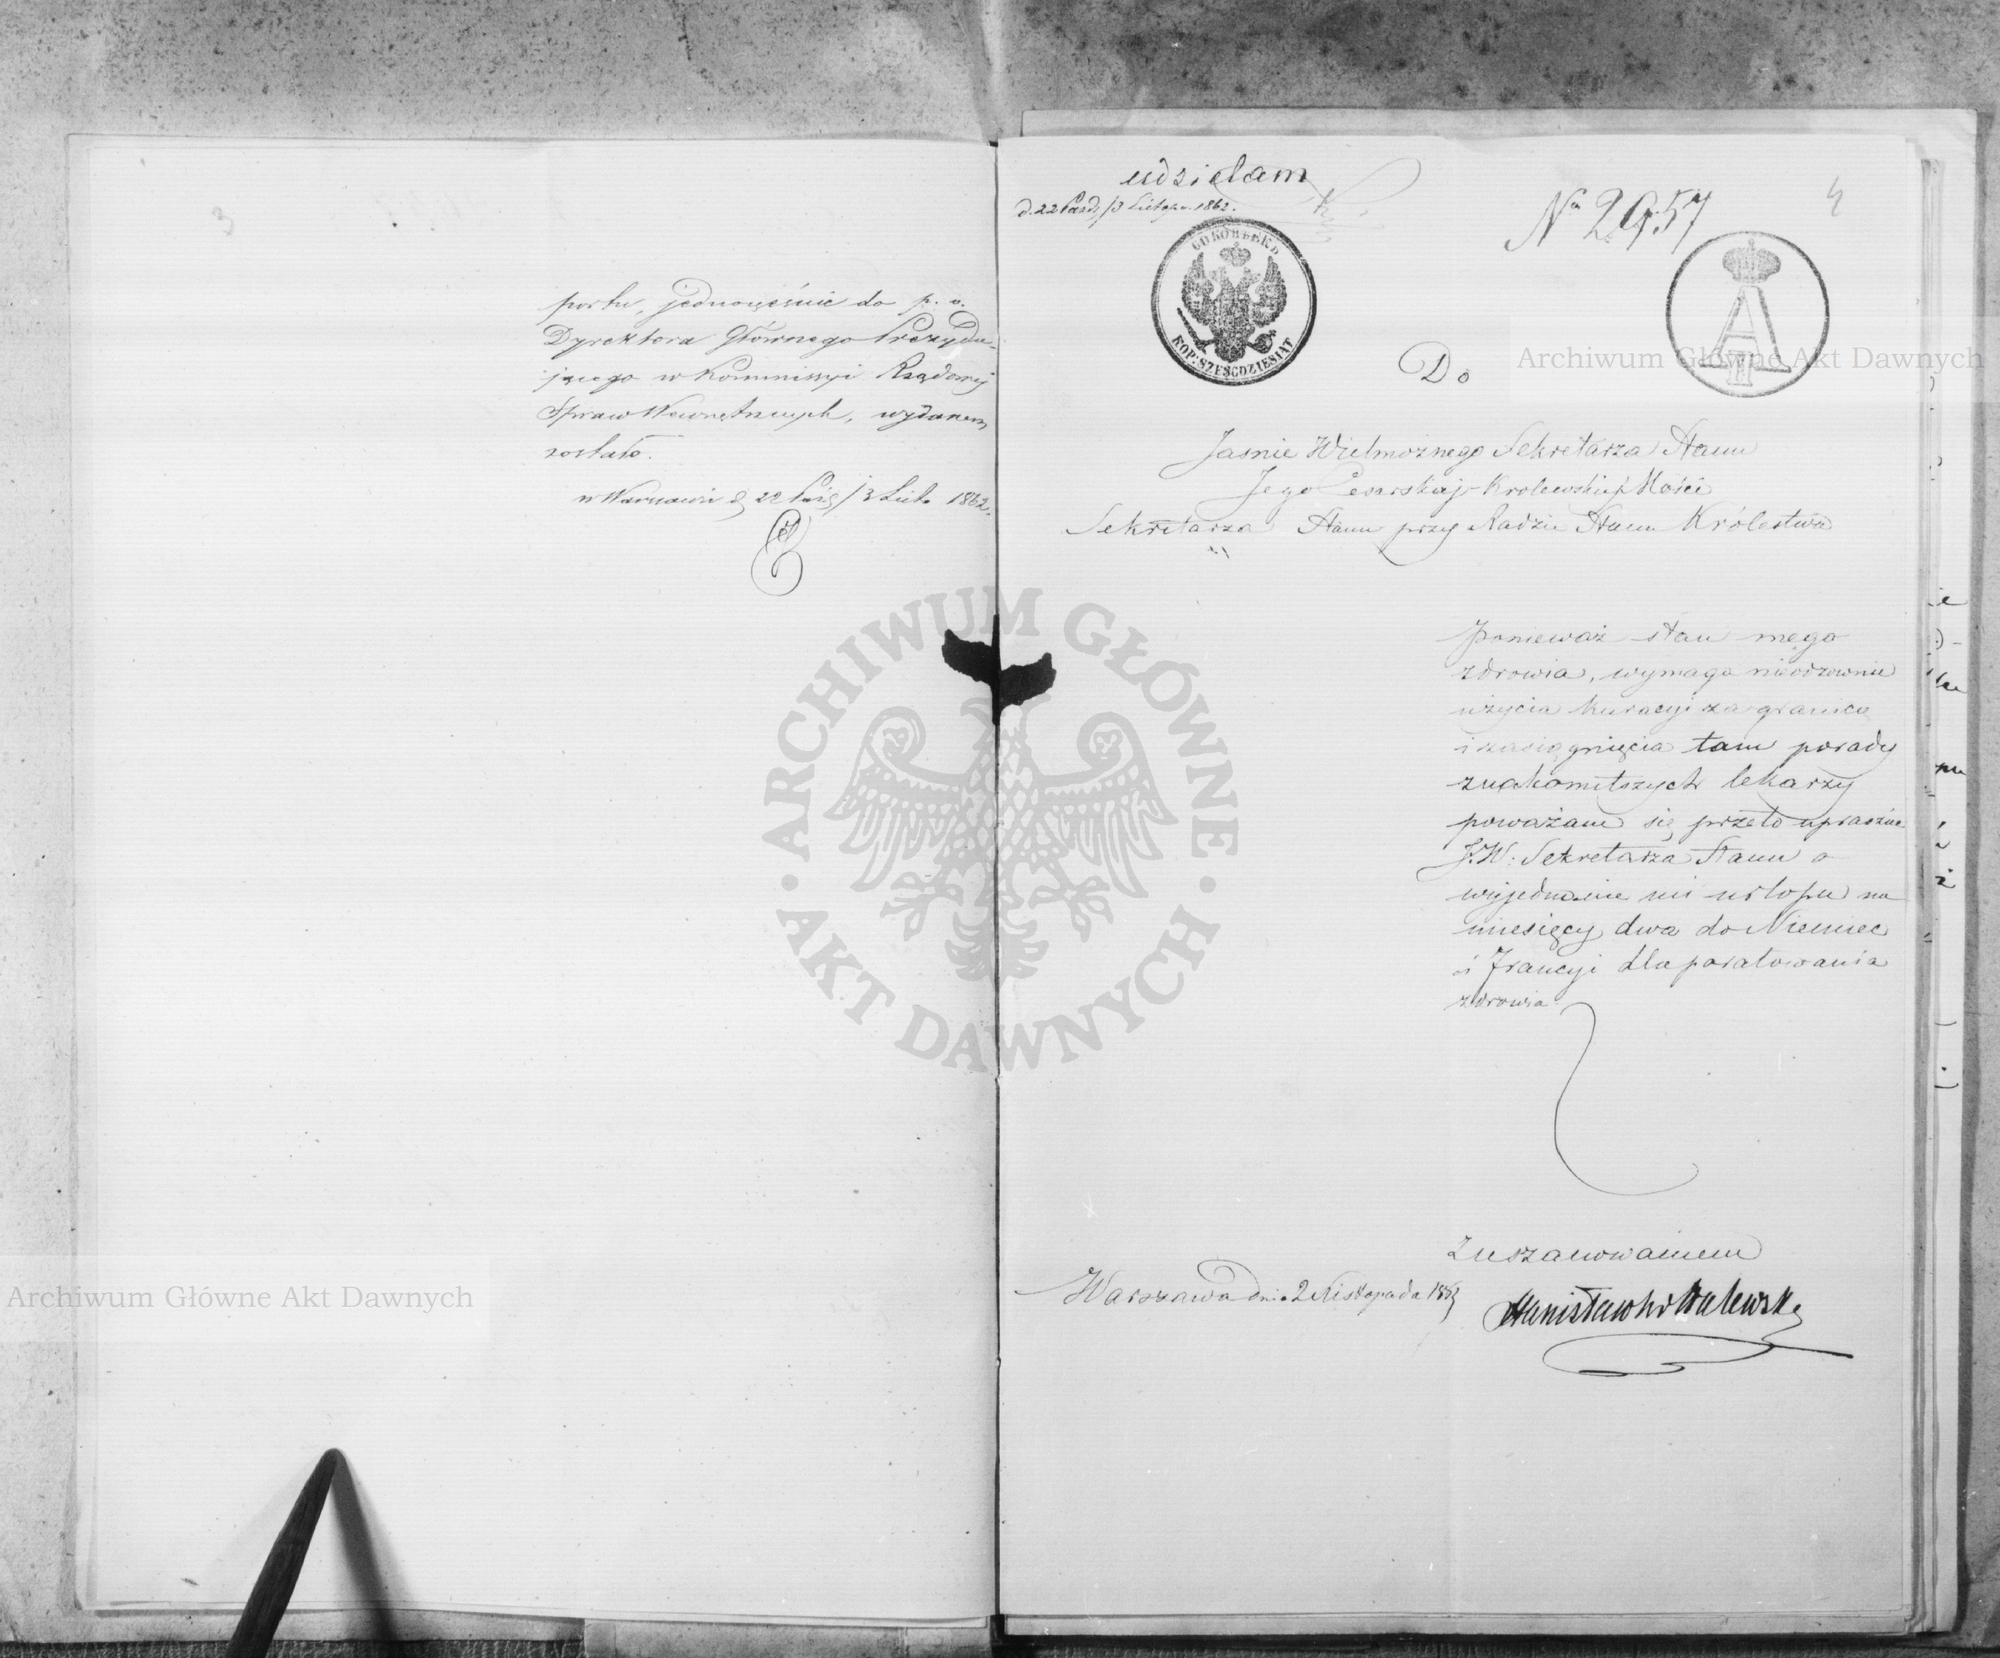 3
portu, jednocześnie do p. o.
Dyrektora Głównego Prezydu-
jącego w Kommissyi Rządowej
Spraw Wewnętrznych, wydanem
zostało.
w Warszawie d. 22 Paźd/3 Listo. 1862.
udzielam
d. 22 Paźdz/3 Listopa. 1862.
Nº 2957
4
60 КОПѢЕКЪ
KOP: SZEŚĆDZIESIĄT
A
II
Do
Jaśnie Wielmożnego Sekretarza Stanu
Jego Cesarskiej Królewskiej Mości
Sekretarza Stanu przy Radzie Stanu Królestwa
Ponieważ stan mego
zdrowia, wymaga nieodzownie
użycia kuracyi za granicą
i zasiągnięcia tam porady
znakomitszych lekarzy
poważam się przeto upraszać
J.W: Sekretarza Stanu o
wyjednanie mi urlopu na
miesięcy dwa do Niemiec
i Francyi dla poratowania
zdrowia.
Z uszanowaniem
Warszawa dnia 2 Listopada 1862
Stanisław hr Walewski
Archiwum Główne Akt Dawnych
ARCHIWUM GŁÓWNE AKT DAWNYCH
Archiwum Główne Akt Dawnych